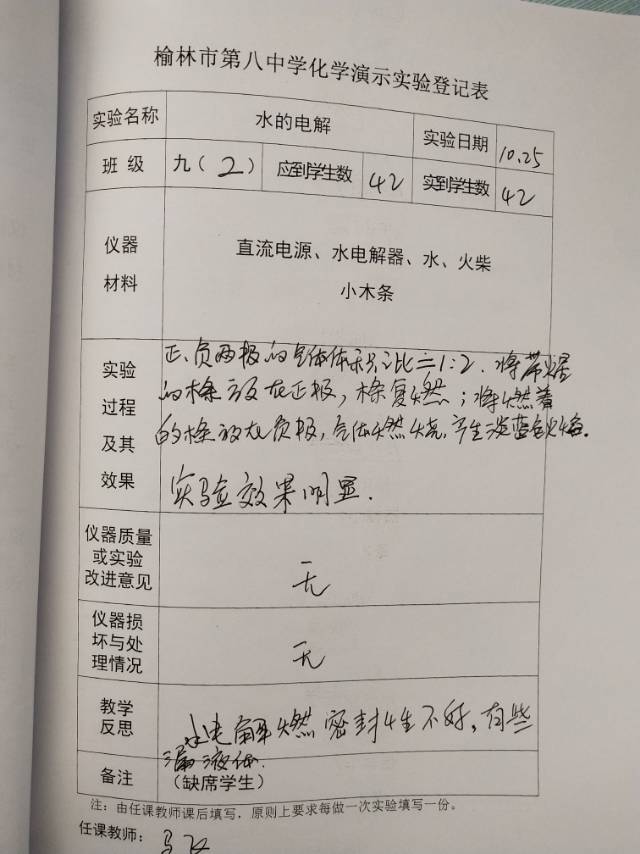 榆林市第八中学化学演示实验登记表
实验名称 水的电解 实验日期 10.25
班 级 九(2) 应到学生数 42 实到学生数 42
仪器
材料
直流电源、水电解器、水、火柴
小木条
实验
过程
及其
效果
正、负两极的气体体积之比=1:2.将带火星
的木条放在正极,木条复燃;将燃着
的木条放在负极,气体燃烧,产生淡蓝色火焰.
实验效果明显.
仪器质量
或实验
改进意见
无
仪器损
坏与处
理情况
无
教学
反思
水电解 密封性不好,有些
漏液体.
备注 (缺席学生)
注:由任课教师课后填写,原则上要求每做一次实验填写一份。
任课教师: